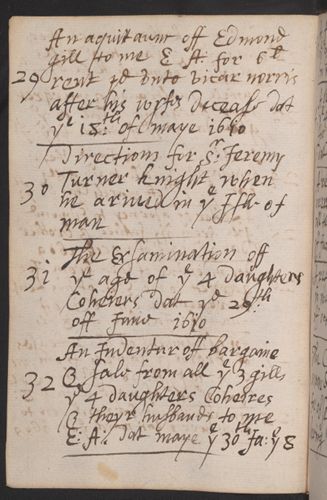 An aquitaunc off Edmond
gill to me E A: for 6li
29 rent pd unto vicar norris
after his wyfs deceass dat
ye 18th of maye 1610
Directions for Sr Jeremy
30 Turner knight when
he arived in ye Isle of
man
The Examination off
31 ye age of ye 4 daughters
Coheiers dat ye 29th
off June 1610
An Indentur off bargaine
32 & sale from all ye 3 gills
ye 4 daughters Coheires
& theyr husbands to me
E: A: dat maye ye 30th Ja: ye 8